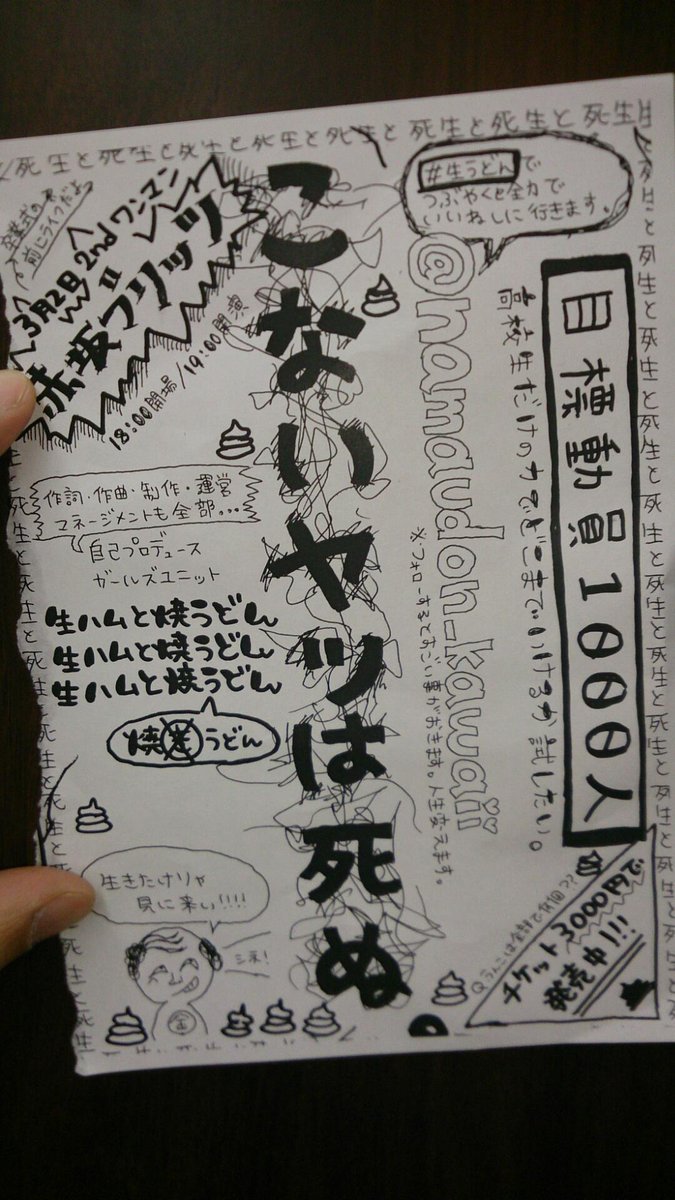 #生うどんで
つぶやくと全力で
いいねしに行きます。
目標動員1000人
高校生だけの力でどこまでいけるか試したい。
@namaudon_kawaii
※フォローするとすごい事がおきます。人生変えます。
こないヤツは死ぬ
卒業式の
前にライブだよ
3月2日 2nd ワンマン
赤坂ブリッツ
18:00開場/19:00開演
作詞・作曲・制作・運営
マネージメントも全部…
自己プロデュース
ガールズユニット
生ハムと焼うどん
生ハムと焼うどん
生ハムと焼うどん
うどん
生きたけりゃ
見に来い!!!!
Qうんこは全部で何個??
チケット3000円で
発売中!!!
死生と死生と死生と死生と死生と死生と死生